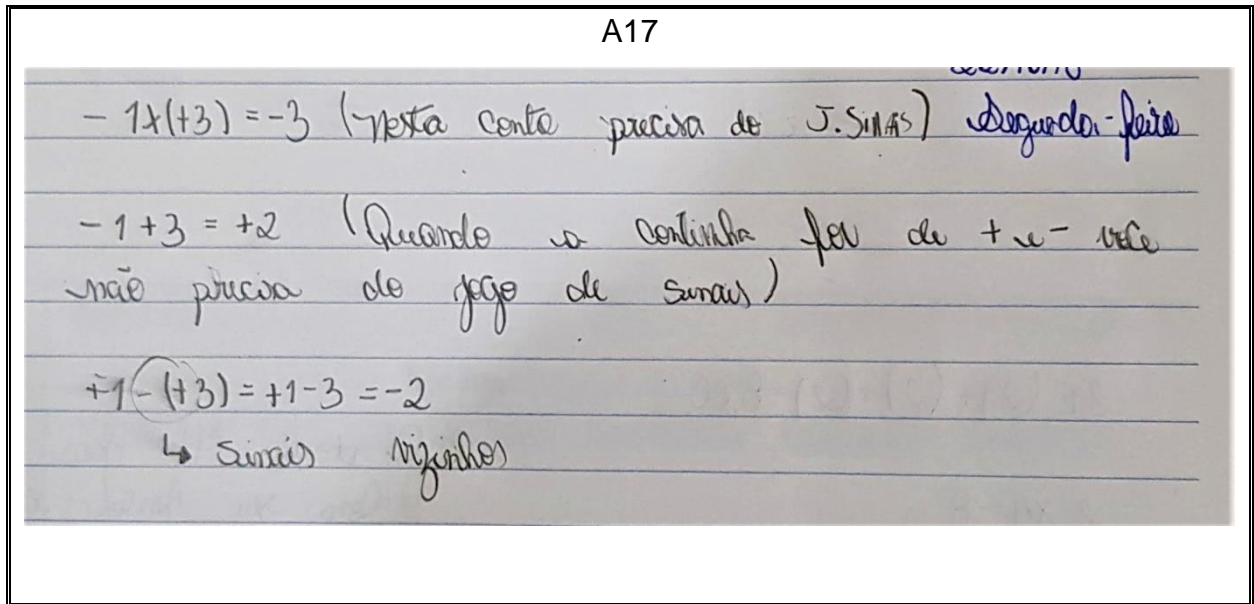 A17
- 1x(+3) = -3 (nesta conta precisa do J.SINAIS) Segunda-feira
- 1 + 3 = +2 (Quando a continha for de + e - você
não precisa do jogo de sinais)
+1 - (+3) = +1 - 3 = -2
↳ sinais vizinhos